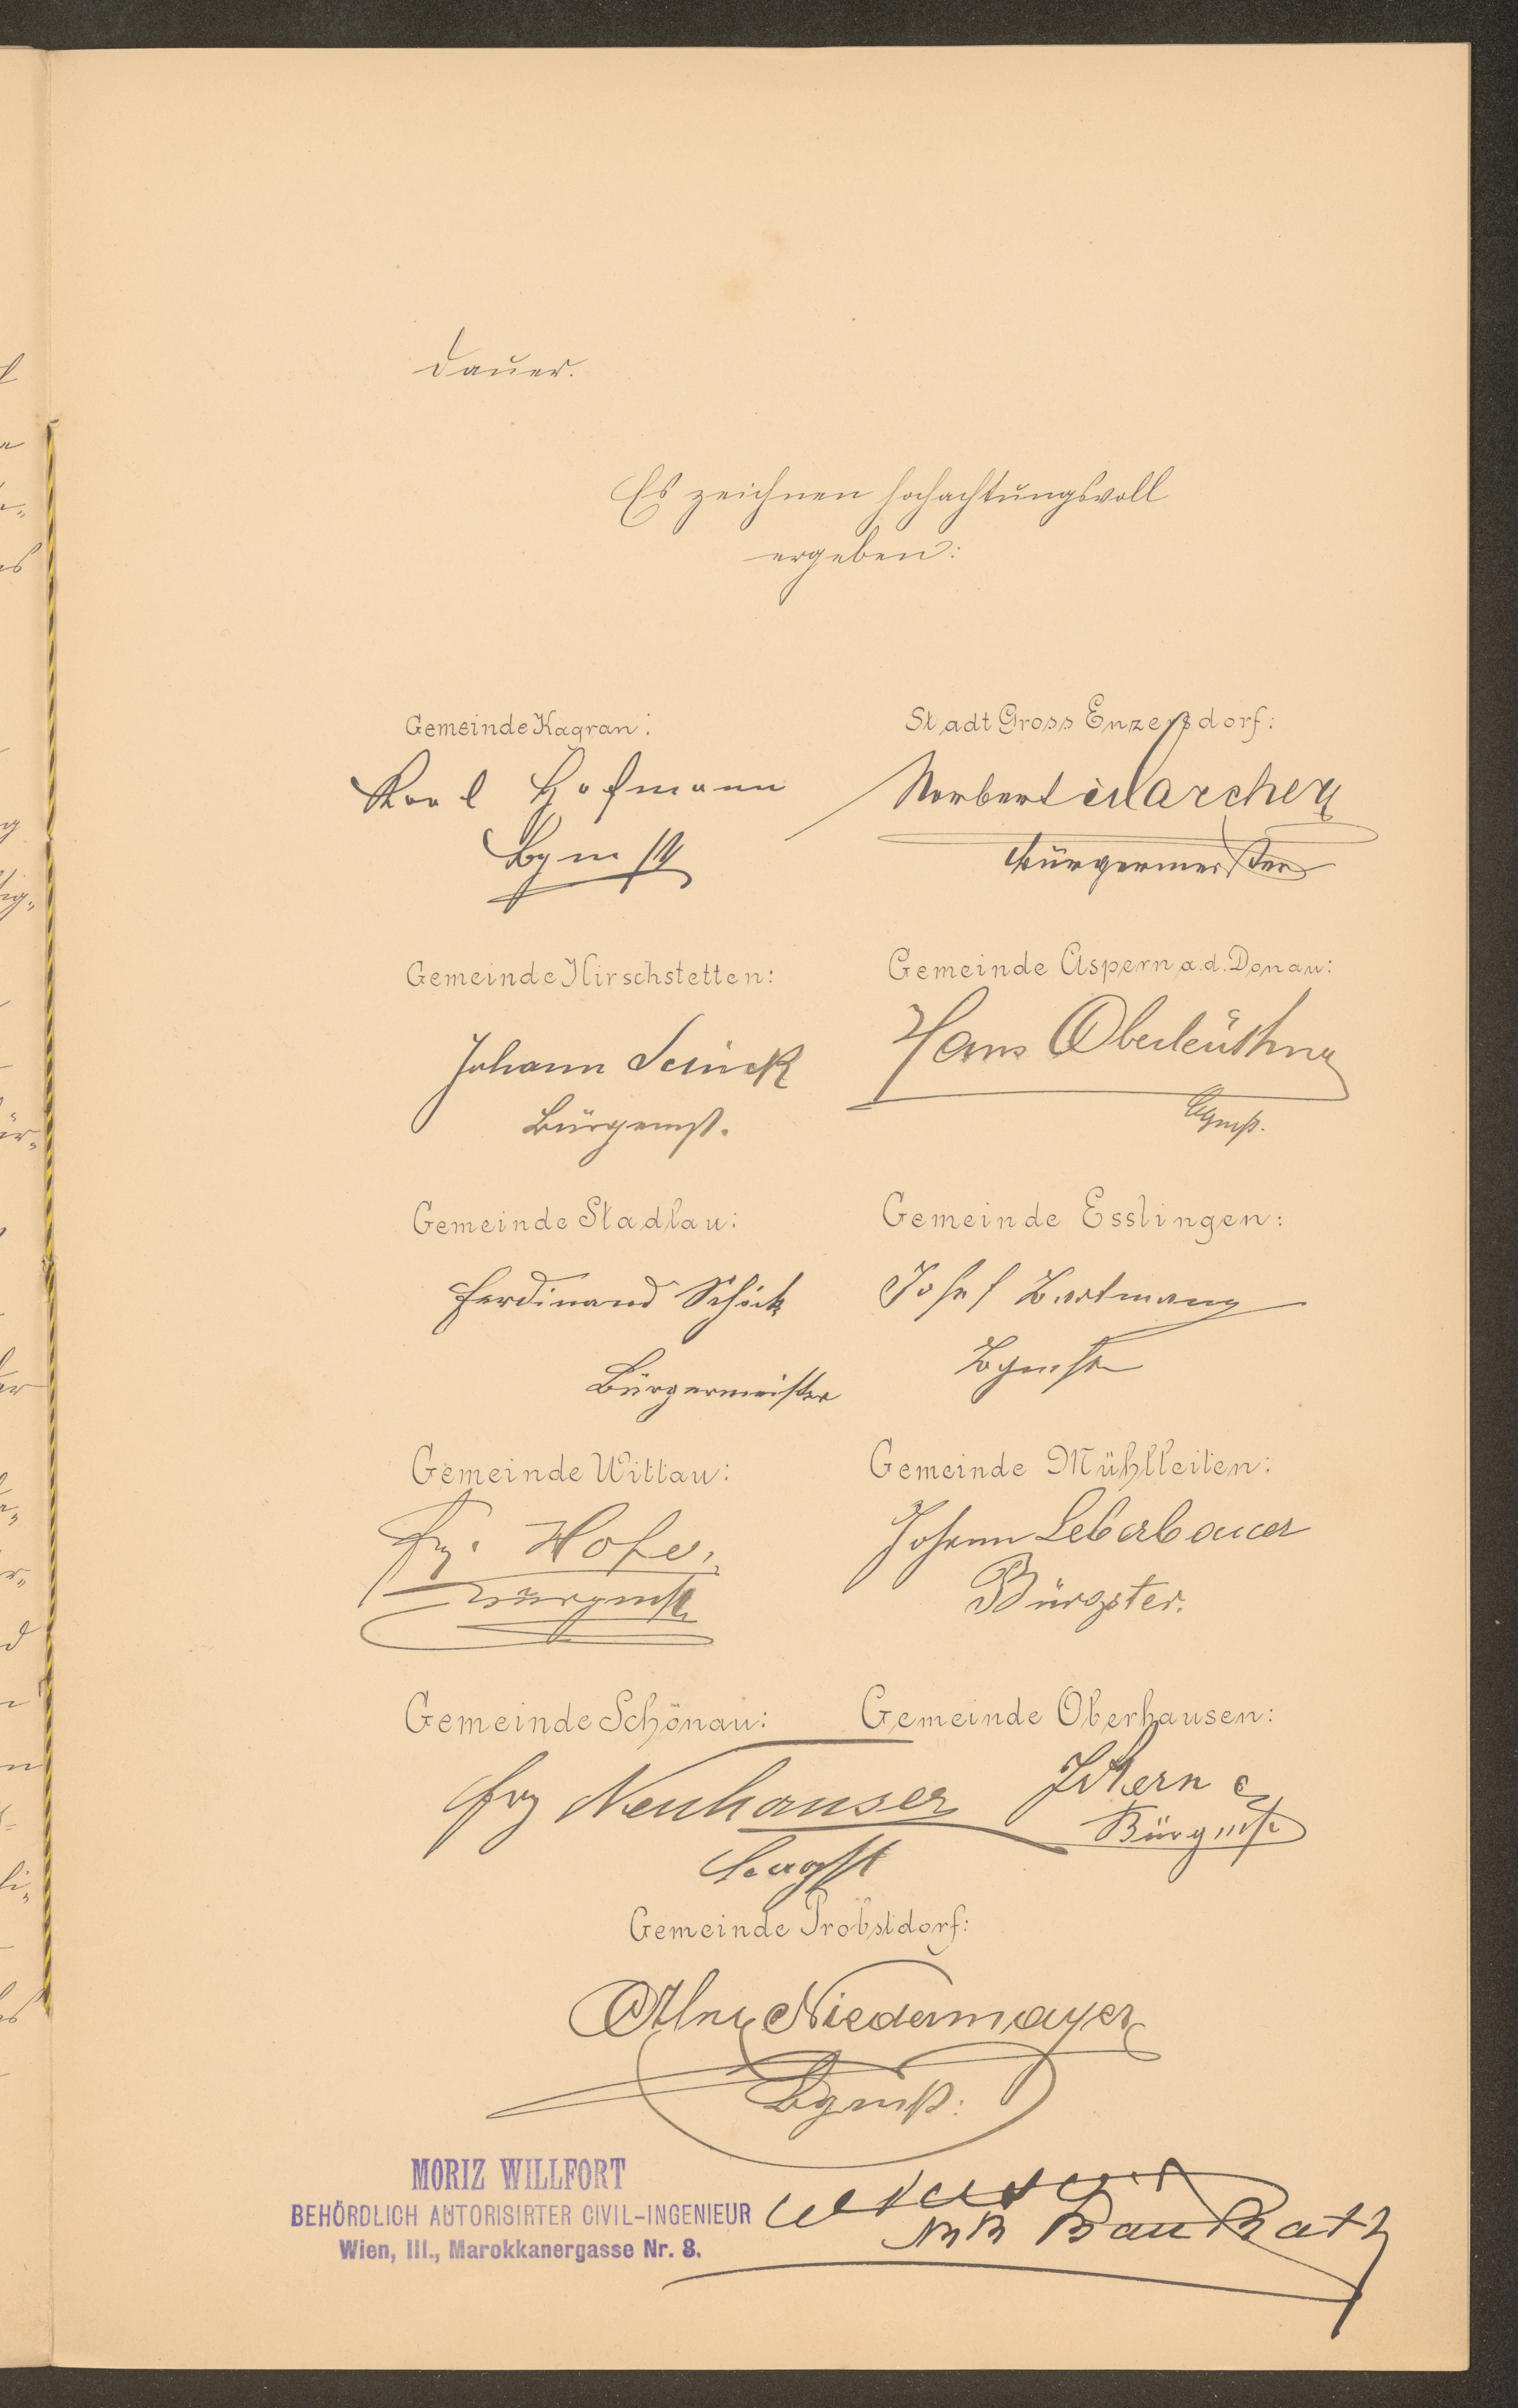 dauer.
Es zeichnen hochachtungsvoll
ergeben:
Gemeinde Kagran:
Karl Hofmann
Bgmst
Stadt Gross Enzersdorf:
Norbert Marcher
Bürgermeister
Gemeinde Hirschstetten:
Johann
Bürgermst.
Gemeinde Aspern a.d. Donau:
Hans Oberleuthner
Bgmst.
Gemeinde Stadlau:
Ferdinand Schick
Bürgermeister
Gemeinde Esslingen:
Josef Hartmann
Bgmst
Gemeinde Wittau:
Frz. Hofer
Bürgmst.
Gemeinde Mühlleiten:
Johann Leberbauer
Bürgster.
Gemeinde Schönau:
Frz Neuhauser
Gemeinde Oberhausen:
Bürgmst.
Gemeinde Probstdorf:
Niedermayer
Bgmst:
MORIZ WILLFORT
BEHÖRDLICH AUTORISIRTER CIVIL-INGENIEUR
Wien, III., Marokkanergasse Nr. 8.
Bau Rath